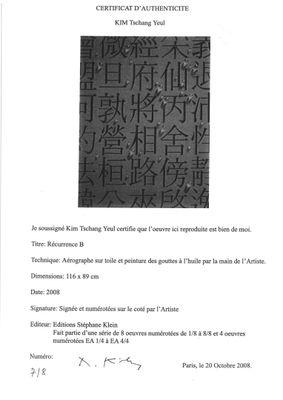 CERTIFICAT D'AUTHENTICITE
KIM Tschang Yeul
微 經 義
盟 旦 府 仙 退
何 孰 將 丙
約 營 相 舍 性
法 桓 路 傍 靜
公 來 啟
Je soussigné Kim Tschang Yeul certifie que l'oeuvre ici reproduite est bien de moi.
Titre: Récurrence B
Technique: Aérographe sur toile et peinture des gouttes à l'huile par la main de l'Artiste.
Dimensions: 116 x 89 cm
Date: 2008
Signature: Signée et numérotées sur le coté par l'Artiste
Editeur: Editions Stéphane Klein
Fait partie d'une série de 8 oeuvres numérotées de 1/8 à 8/8 et 4 oeuvres
numérotées EA 1/4 à EA 4/4
Numéro:
7/8
Paris, le 20 Octobre 2008.